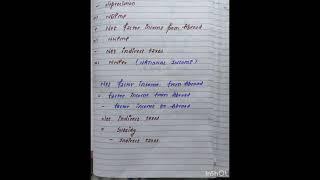 - Depreciation
= NDPmp
+ Net factor income from Abroad
= NNPmp
- Net indirect taxes
= NNPfc (NATIONAL INCOME)
Net factor income from Abroad
= factor income from Abroad
- factor income to Abroad
Net Indirect taxes
= Subsidy
- Indirect taxes
InShOt